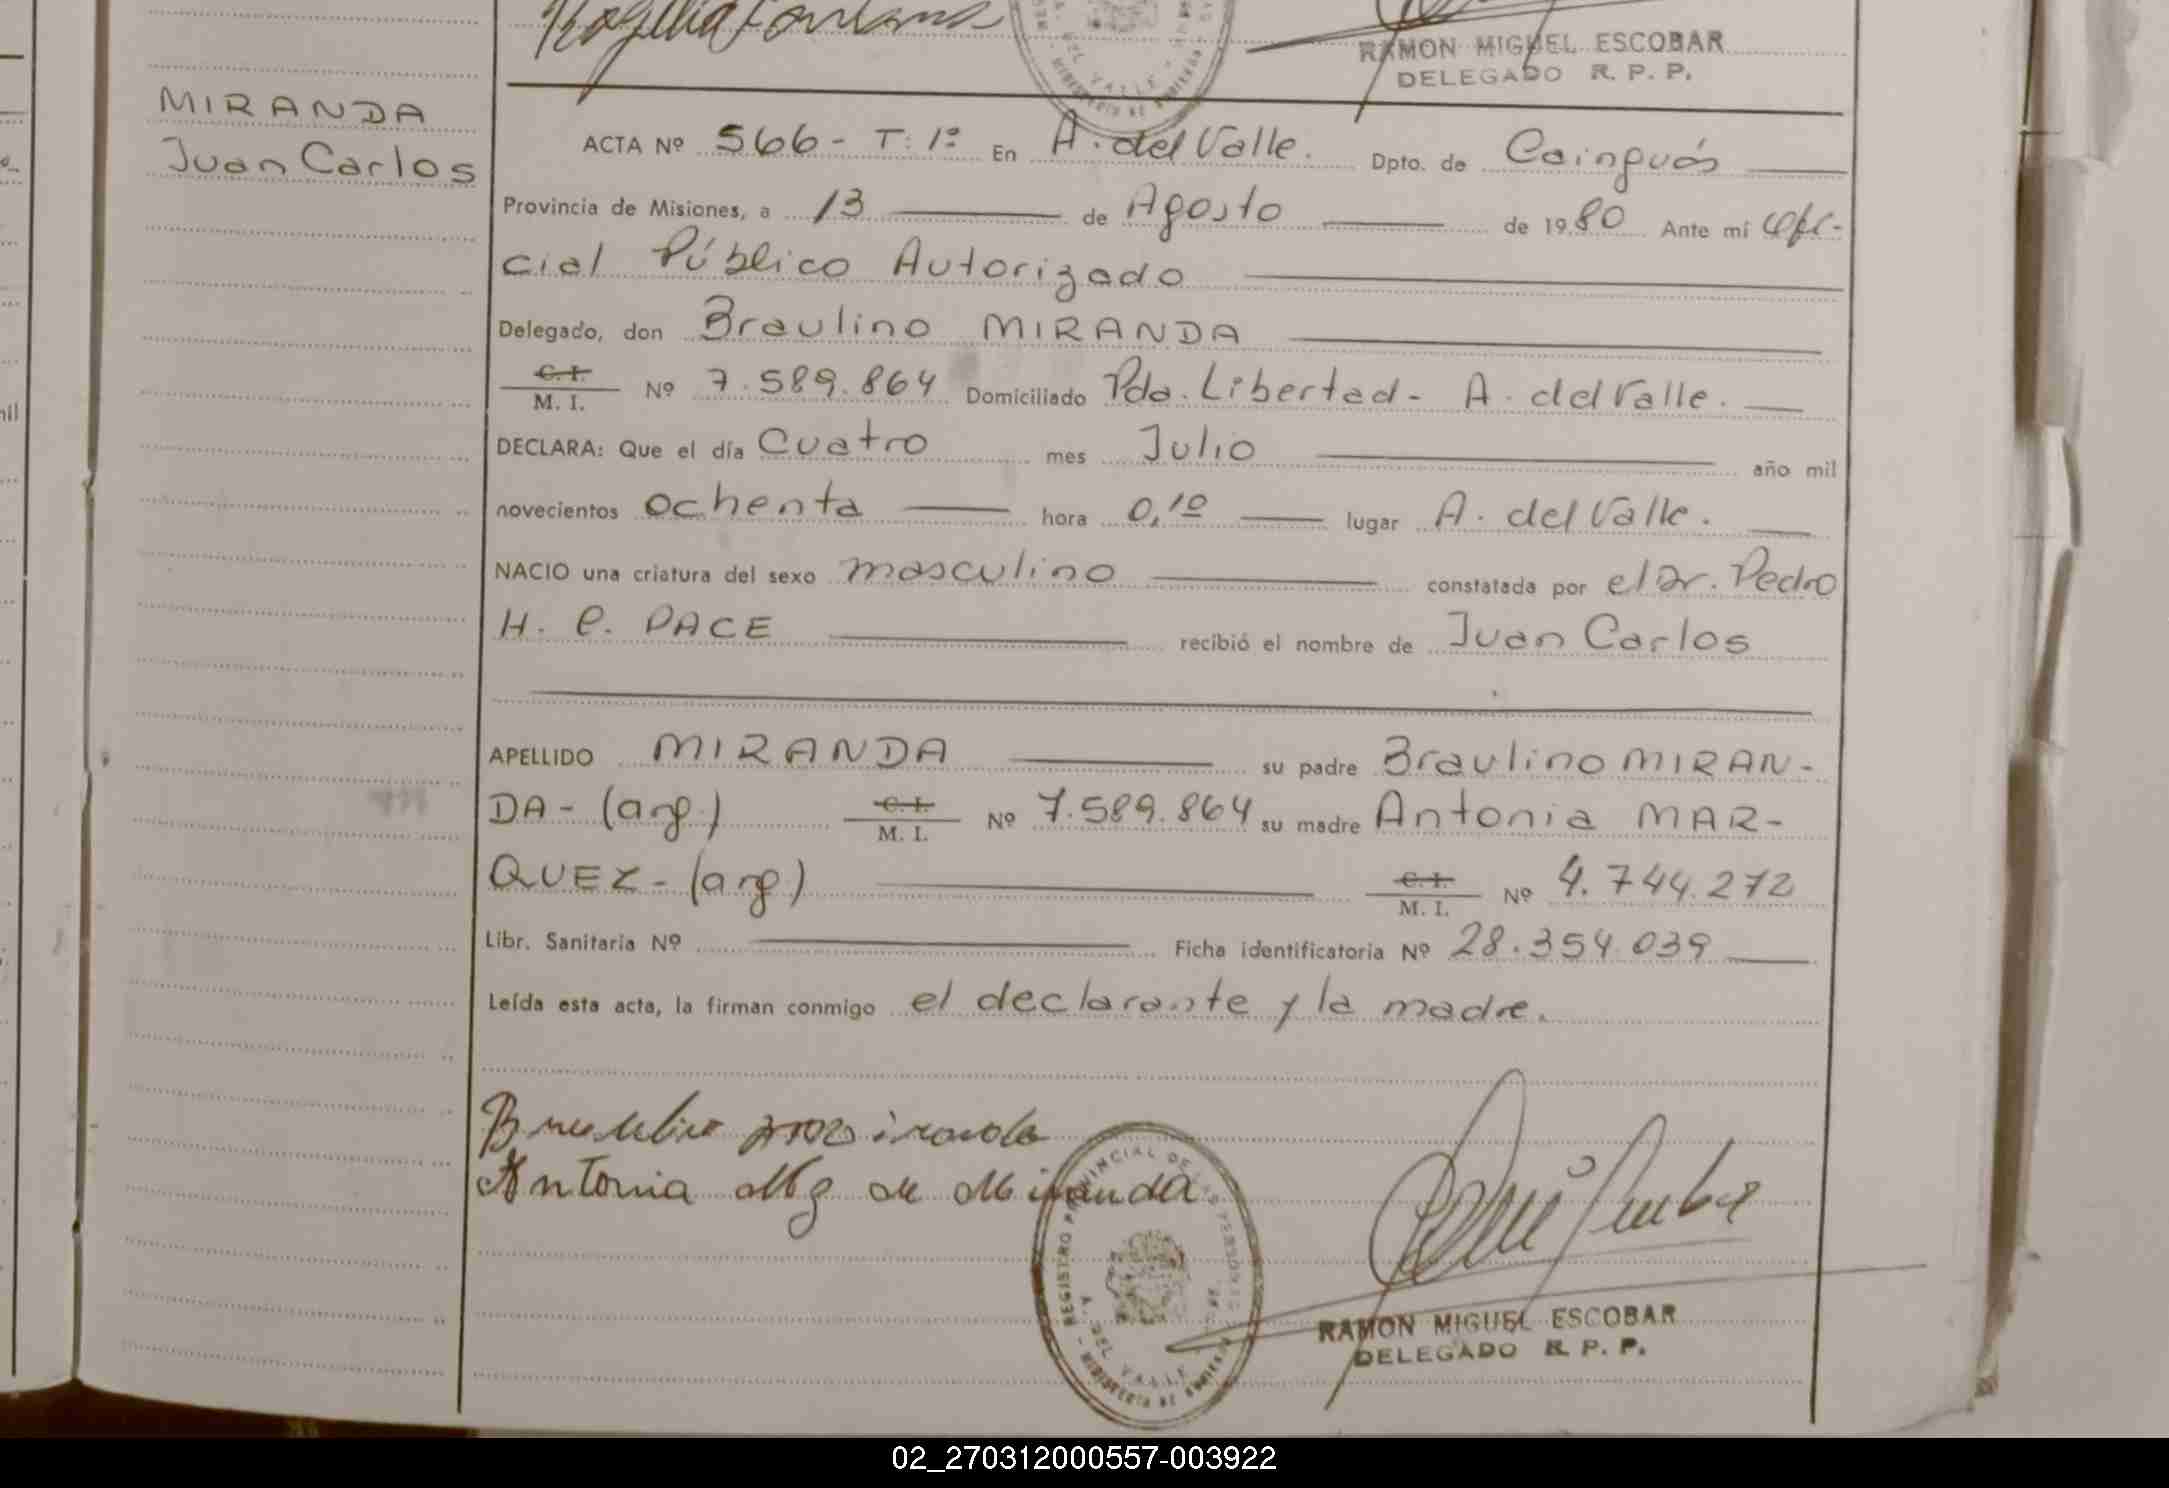 RAMON MIGUEL ESCOBAR
DELEGADO R. P. P.
MIRANDA
Juan Carlos
ACTA Nº 566 - T: 1º En A. del Valle. Dpto. de Cainguás
Provincia de Misiones, a 13 de Agosto de 1980 Ante mí Ofi-
cial Público Autorizado
Delegado, don Braulino MIRANDA
C. I.
M. I. Nº 7.589.864 Domiciliado Pda. Libertad - A. del Valle.
DECLARA: Que el día Cuatro mes Julio año mil
novecientos ochenta hora 0,10 lugar A. del Valle.
NACIO una criatura del sexo masculino constatada por el Dr. Pedro
H. C. PACE recibió el nombre de Juan Carlos
APELLIDO MIRANDA su padre Braulino MIRAN-
DA - (arg.) C. I. M. I. Nº 7.589.864 su madre Antonia MAR-
QUEZ - (arg.) C. I. M. I. Nº 4.744.272
Libr. Sanitaria Nº Ficha identificatoria Nº 28.354.039
Leída esta acta, la firman conmigo el declarante y la madre.
Antonia Mz de Miranda
REGISTRO PROVINCIAL DE LAS PERSONAS
A. DEL VALLE
RAMON MIGUEL ESCOBAR
DELEGADO R. P. P.
02_270312000557-003922